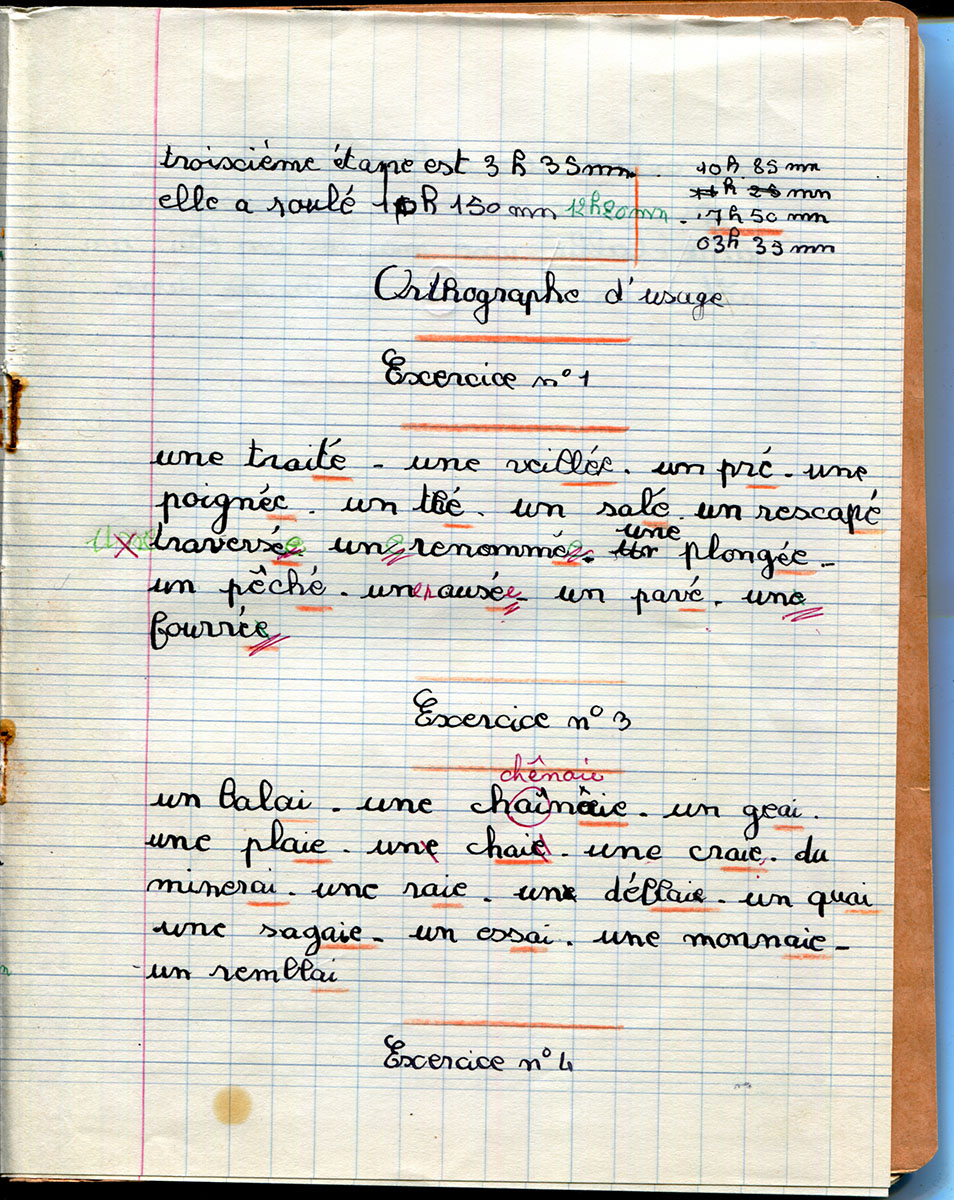 troisciéme étape est 3 h 35 mn.
elle a roulé 10h 150 mn 12h20mn
10h 85 mn
11h 25 mn
- 7h 50 mn
03h 35 mn
Orthographe d'usage
Excercice n° 1
une traité - une veillée. un pré - une
poignée. un thé. un salé. un rescapé
une traversée une renommée. une plongée -
un pêché. une pausée - un pavé. une
fourrée
Excercice n° 3
chênaie
un balai - une chaînaie. un geai.
une plaie. une chaie. une craie. du
minerai. une raie. une déllaie. un quai
une sagaie - un essai. une monnaie -
- un remblai
Excercice n° 4